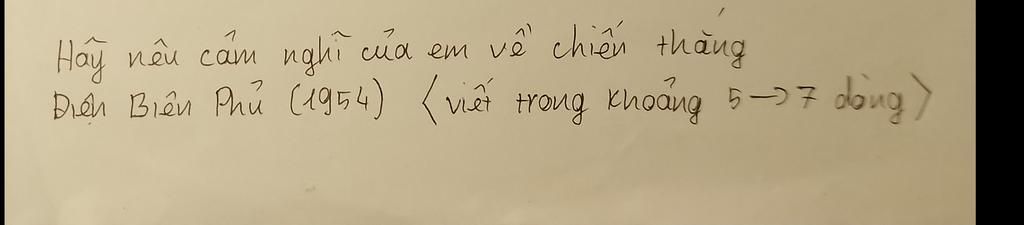 Hãy nêu cảm nghĩ của em về chiến thắng
Điện Biên Phủ (1954) <viết trong khoảng 5→7 dòng>